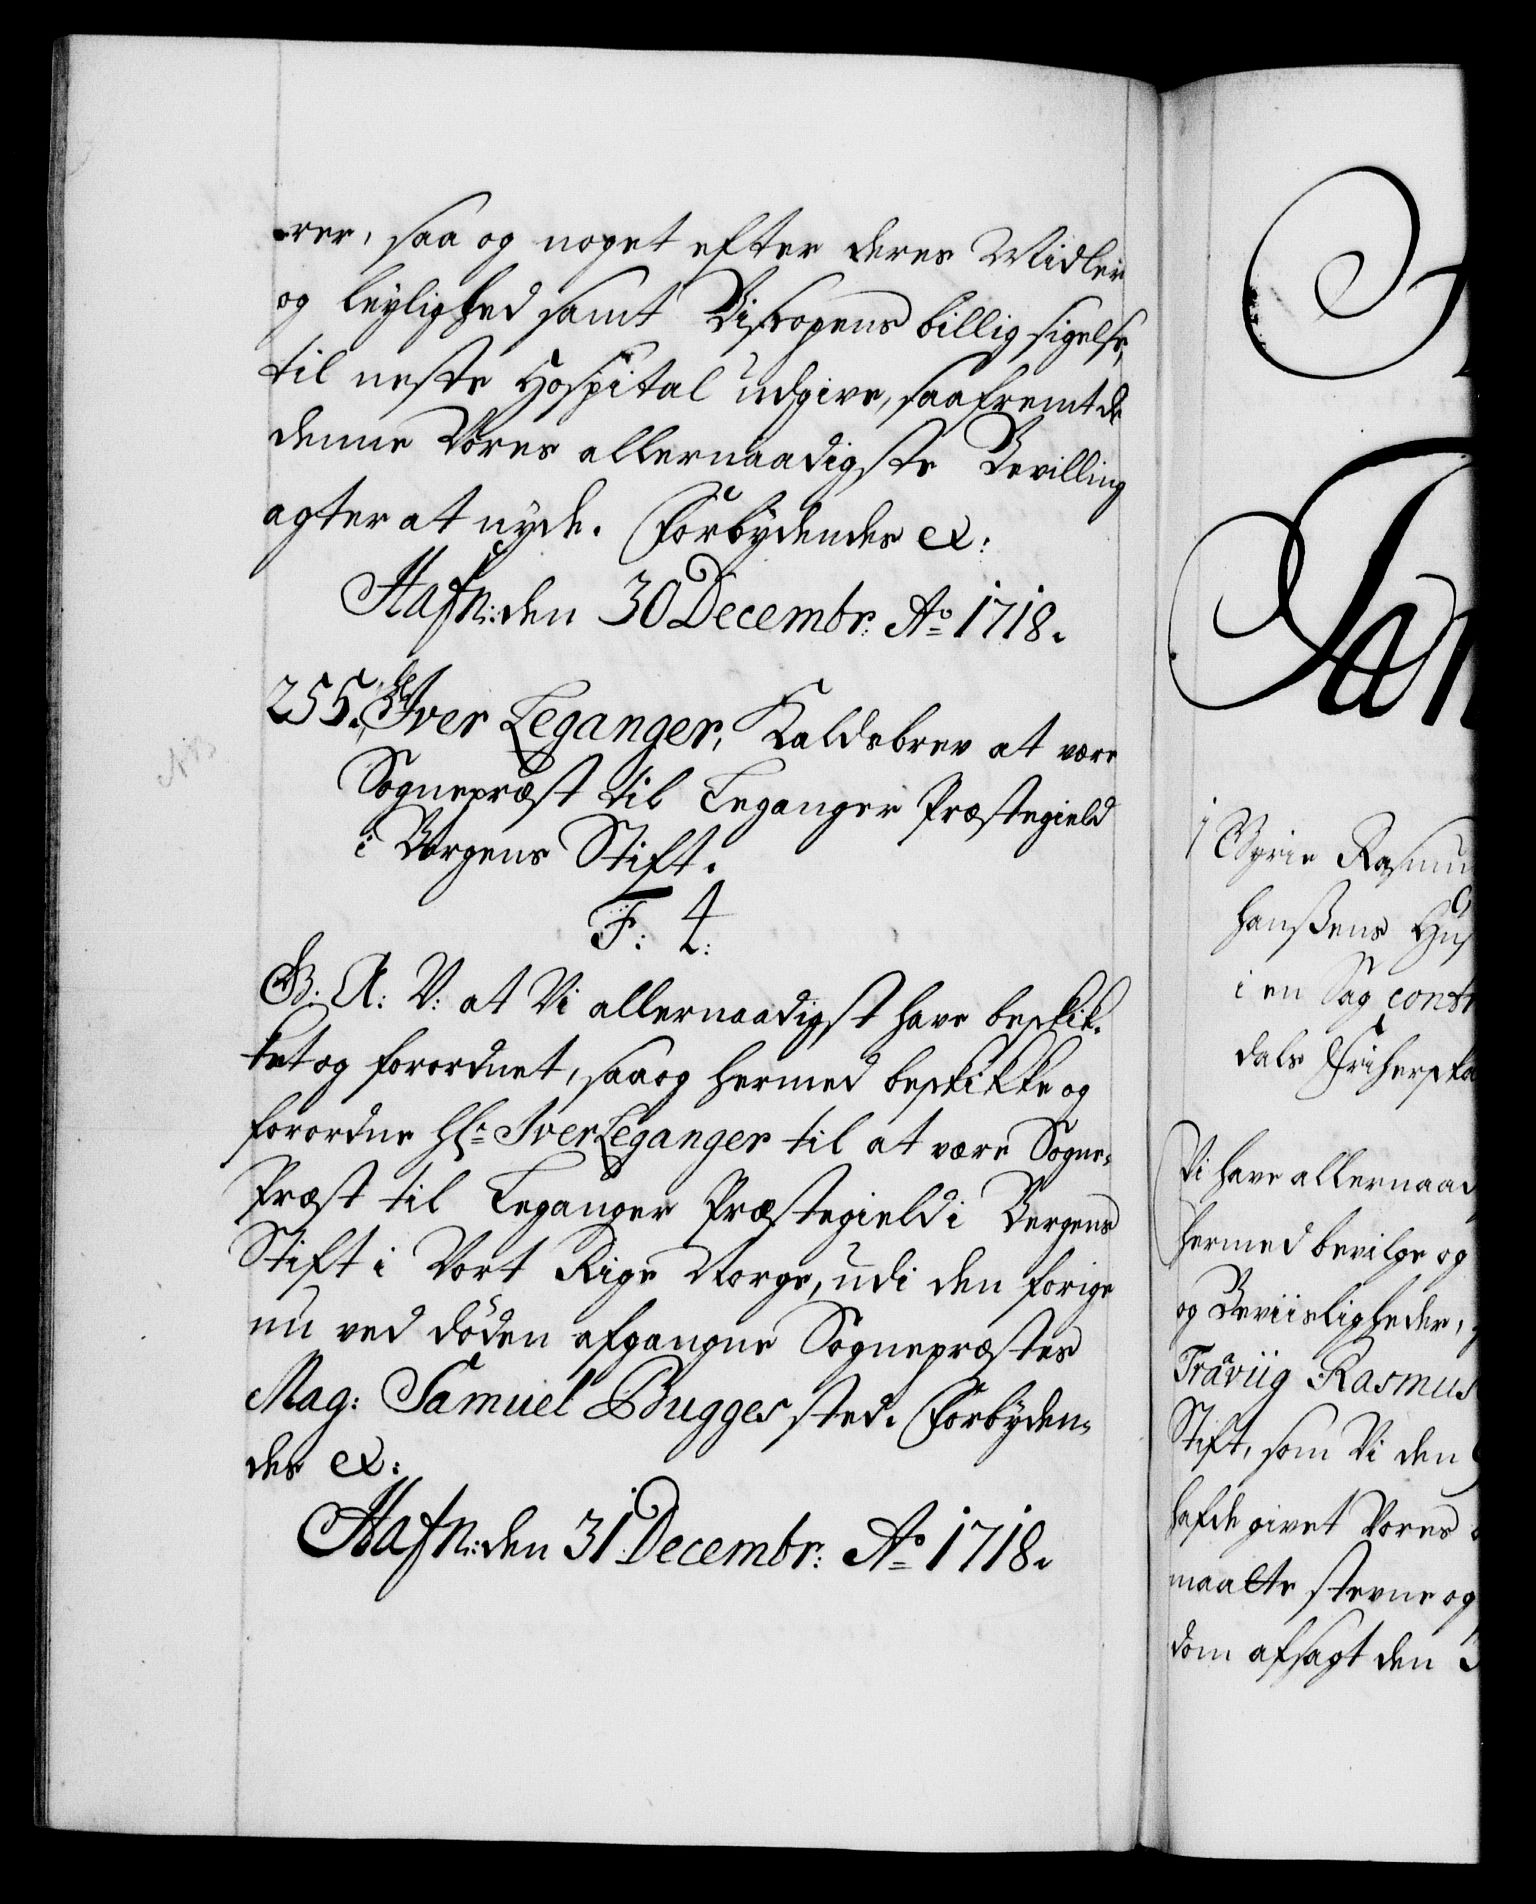 rer, saa og noget efter deres Midler
og leylighed samt Biscopens billig sigelse,
til neste Hospital udgive, saafremt de
denne Vores allernaadigste Bevilling
agter at nyde. Forbydendes &:
Hafn: den 30 Decembr: Ao 1718.
255. Hr Iver Leganger, Kaldsbrev at være
Sognepræst til Leganger Præstegield
i Bergens Stift.
F: 4:
G: A: V: at Vi allernaadigst have beskik-
ket og forordnet, saa og hermed beskikke og
forordne Hr: Iver Leganger til at være Sogne-
Præst til Leganger Præstegield i Bergens
Stift i Vort Rige Norge, udi den forige
nu ved döden afgangne Sognepræstes
Mag: Samuel Bugges sted. Forbyden-
des &:
Hafn: den 31 Decembr: Ao 1718.
1 Rasmu
Hanßens Hus
i en Sag contr
dals Friherska
Vi have allernaad
hermed bevilge og
og Beviisligheder,
Tråviig Rasmus
Stift, som Vi den
hafde givet Vores
maalte stevne og
dom afsagt den